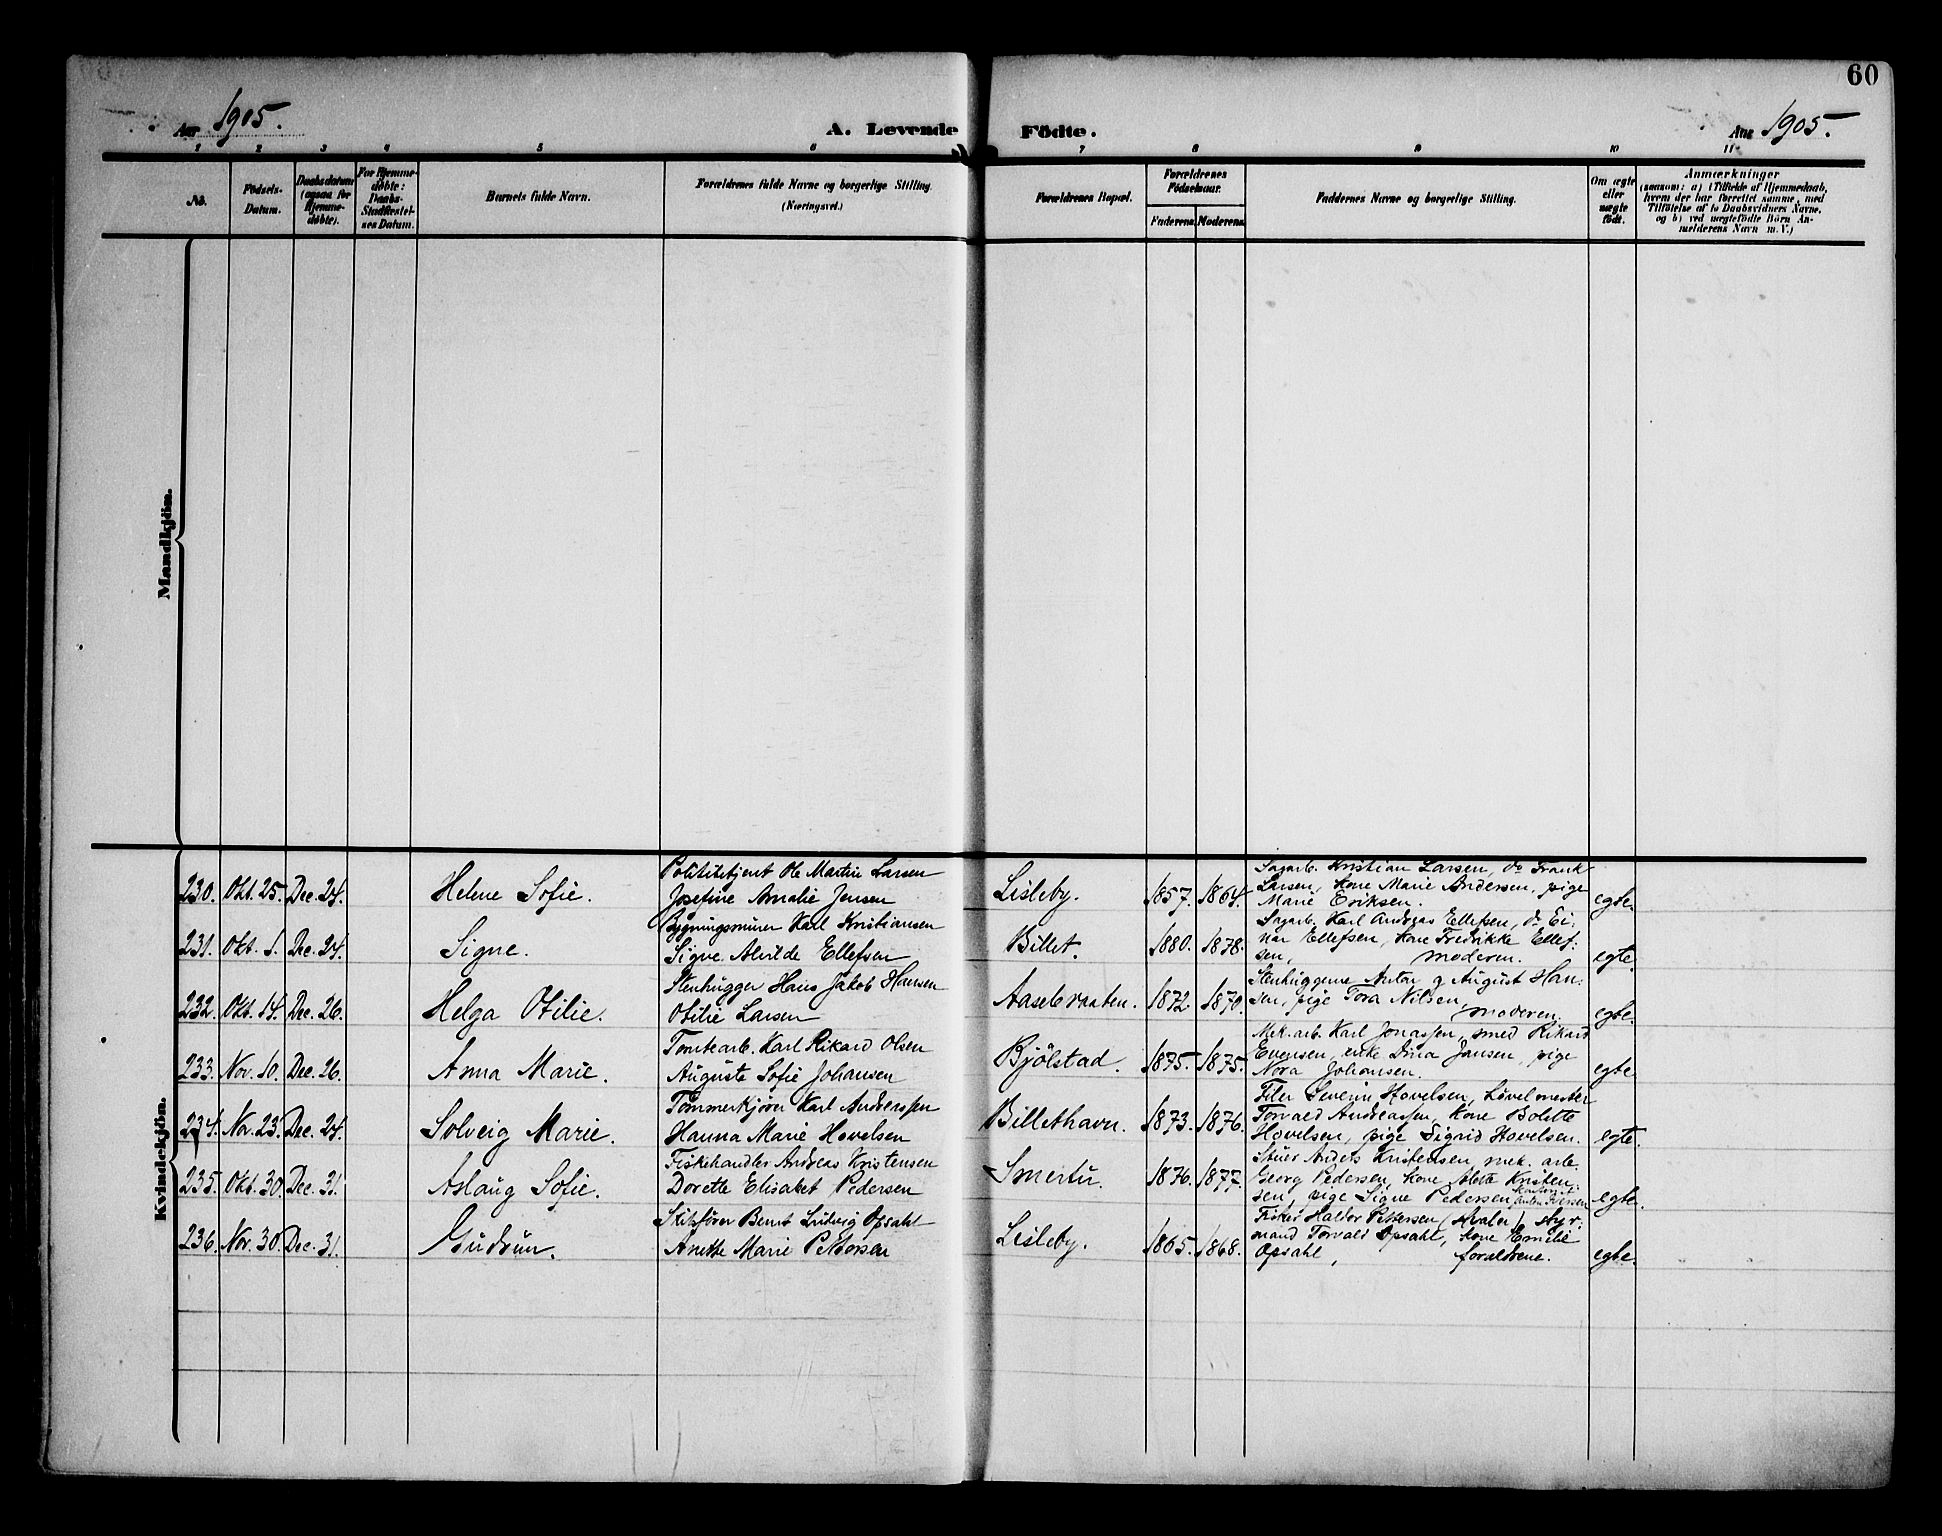 60
Aar 1905.
A. Levende Födte.
Aar 1905.
1 2 3 4 5 6 7 8 9 10 11
No.
Födsels-
Datum.
Daabsdatum
(ogsaa for
Hjemme-
döbte).
For Hjemme-
döbte:
Daabs-
Stadfæstel-
ses Datum.
Barnets fulde Navn.
Forældrenes fulde Navne og borgerlige Stilling.
(Næringsvei.)
Forældrenes Bopæl.
Forældrenes
Födselsaar.
Faderens. Moderens.
Faddernes Navne og borgerlige Stilling.
Om ægte
eller
uægte
födt.
Anmærkninger
(saasom: a) i Tilfælde af Hjemmedaab,
hvem der har forrettet samme, med
Tilföielse af to Daabsvidners Navne,
og b) ved uægtefödte Börn An-
melderens Navn m. V.)
Mandkjön.
Kvindekjön.
230. Okt. 25. Dec. 24. Helene Sofie.
Politibetjent Ole Martin Larsen
Josefine Amalie Jensen
Lisleby. 1857. 1864.
Sagarb. Kristian Larsen, do Frank
Larsen, kone Marie Andersen, pige
Marie Eriksen.
egte.
231. Okt. 1. Dec. 24. Signe.
Bygningsmurer Karl Kristiansen
Signe Alvilde Ellefsen
Billet. 1880. 1878.
Sagarb. Karl Andreas Ellefsen, do Ei-
nar Ellefsen, kone Fredrikke Ellef-
sen, moderen.
egte.
232. Okt. 14. Dec. 26. Helga Otilie.
Stenhugger Hans Jakob Hansen
Otilie Larsen
Aasebraaten. 1872. 1870.
Stenhuggerne Anton og August Han-
sen, pige Tora Nilsen, moderen.
egte.
233. Nov. 10. Dec. 26. Anna Marie.
Tomtearb. Karl Rikard Olsen
Auguste Sofie Johansen
Bjölstad. 1875. 1875.
Mek. arb. Karl Jonassen, smed Rikard
Evensen, enke Dina Jansen, pige
Nora Johansen.
egte.
234. Nov. 23. Dec. 24. Solveig Marie.
Tömmerkjörer Karl Andreassen
Hanna Marie Hovelsen
Billethavn. 1873. 1876.
Filer Severin Hovelsen,
Torvald Andreassen, kone Bolette
Hovelsen, pige Sigrid Hovelsen.
egte.
235. Okt. 30. Dec. 31. Aslaug Sofie.
Fiskehandler Andreas Kristensen
Dorette Elisabet Pedersen
Smertu. 1876. 1877.
Stuer Anders Kristensen, mek. arb.
Georg Pedersen, kone Kristen-
sen, pige Signe Pedersen
egte.
236. Nov. 30. Dec. 31. Gudrun.
Skibsförer Bernt Ludvig Opsahl
Anette Marie Pettersen
Lisleby. 1865. 1868.
Fisker Haldor Pettersen (Hvaler), styr-
mand Torvald Opsahl, kone Emilie
Opsahl, foraldrene.
egte.